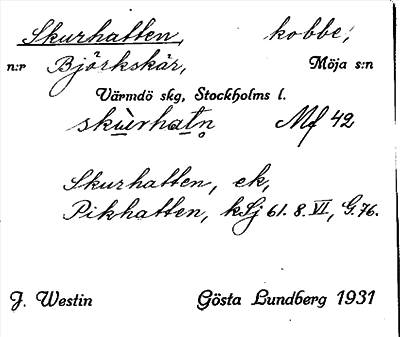 Skurhatten, kobbe,
n:r Björkskär, Möja s:n
Värmdö skg, Stockholms l.
skùrhatn̥ Mf 42
Skurhatten, ek,
Pikhatten, kSj 61. 8. VI, G. 76.
J. Westin Gösta Lundberg 1931